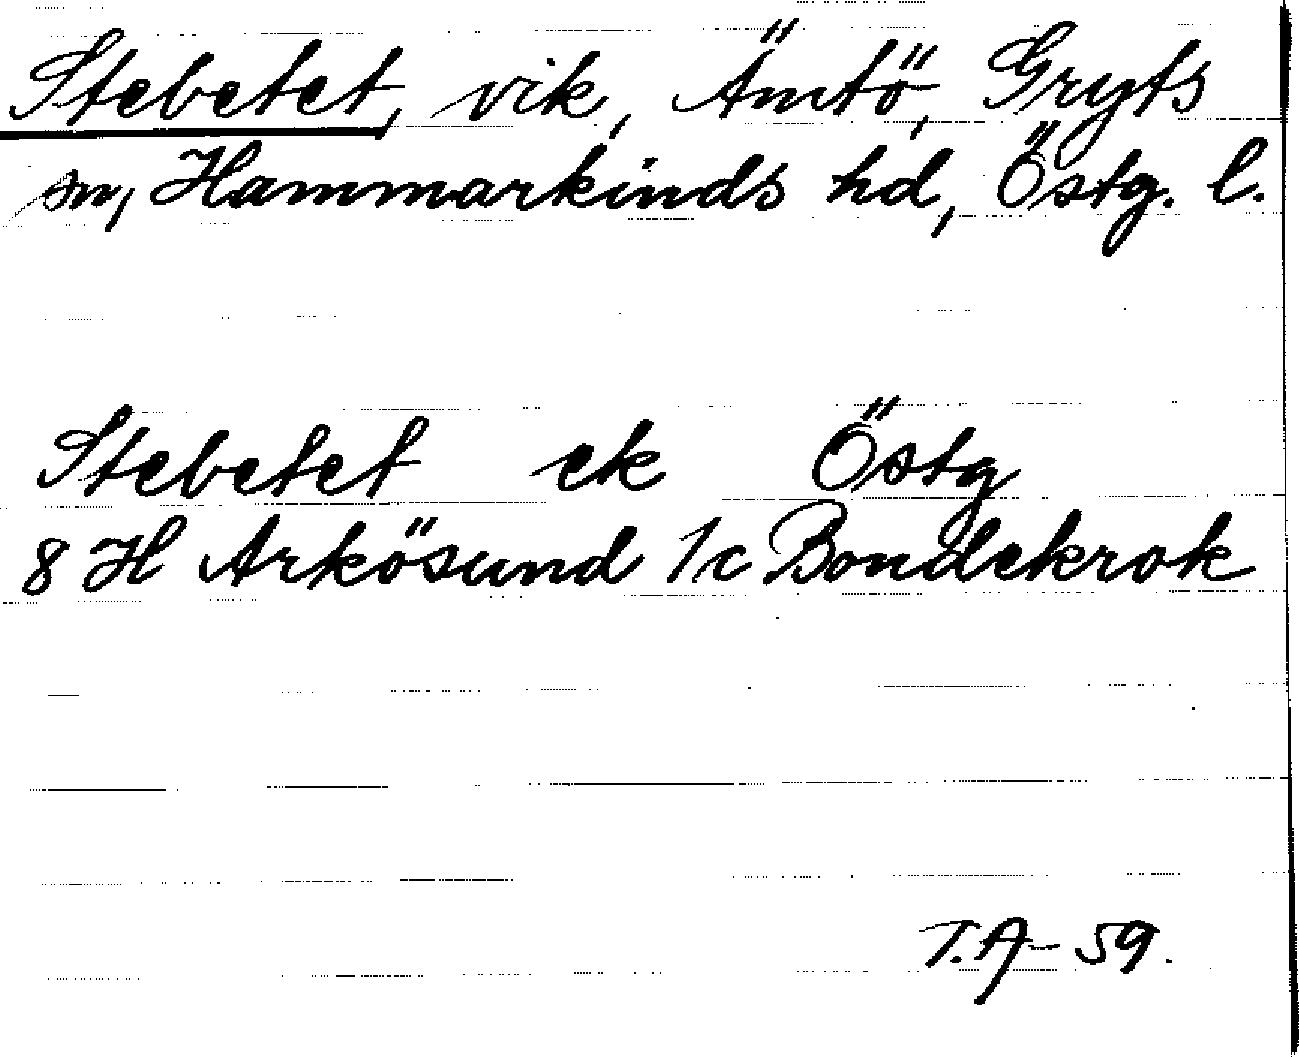 Stebetet, vik, Ämtö, Gryts
sn, Hammarkinds hd, Östg. l.
Stebetet ek Östg
8 H Arkösund 1c Bondekrok
T.A- 59.